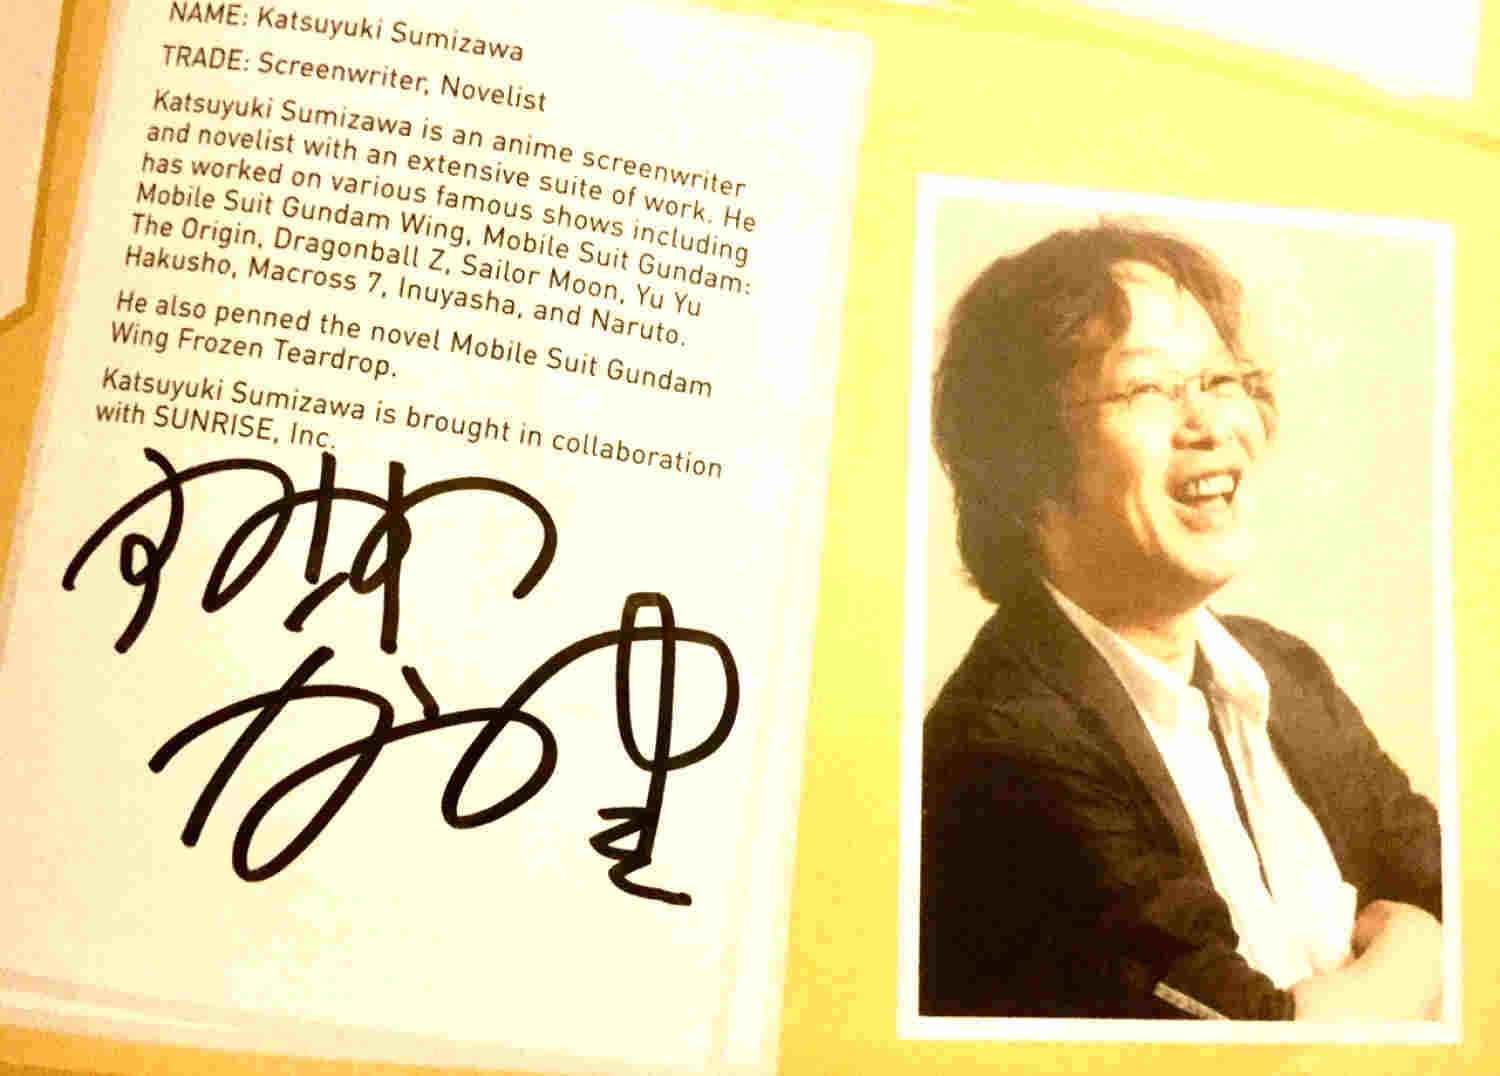 NAME: Katsuyuki Sumizawa
TRADE: Screenwriter, Novelist
Katsuyuki Sumizawa is an anime screenwriter
and novelist with an extensive suite of work. He
has worked on various famous shows including
Mobile Suit Gundam Wing, Mobile Suit Gundam:
The Origin, Dragonball Z, Sailor Moon, Yu Yu
Hakusho, Macross 7, Inuyasha, and Naruto.
He also penned the novel Mobile Suit Gundam
Wing Frozen Teardrop.
Katsuyuki Sumizawa is brought in collaboration
with SUNRISE, Inc.